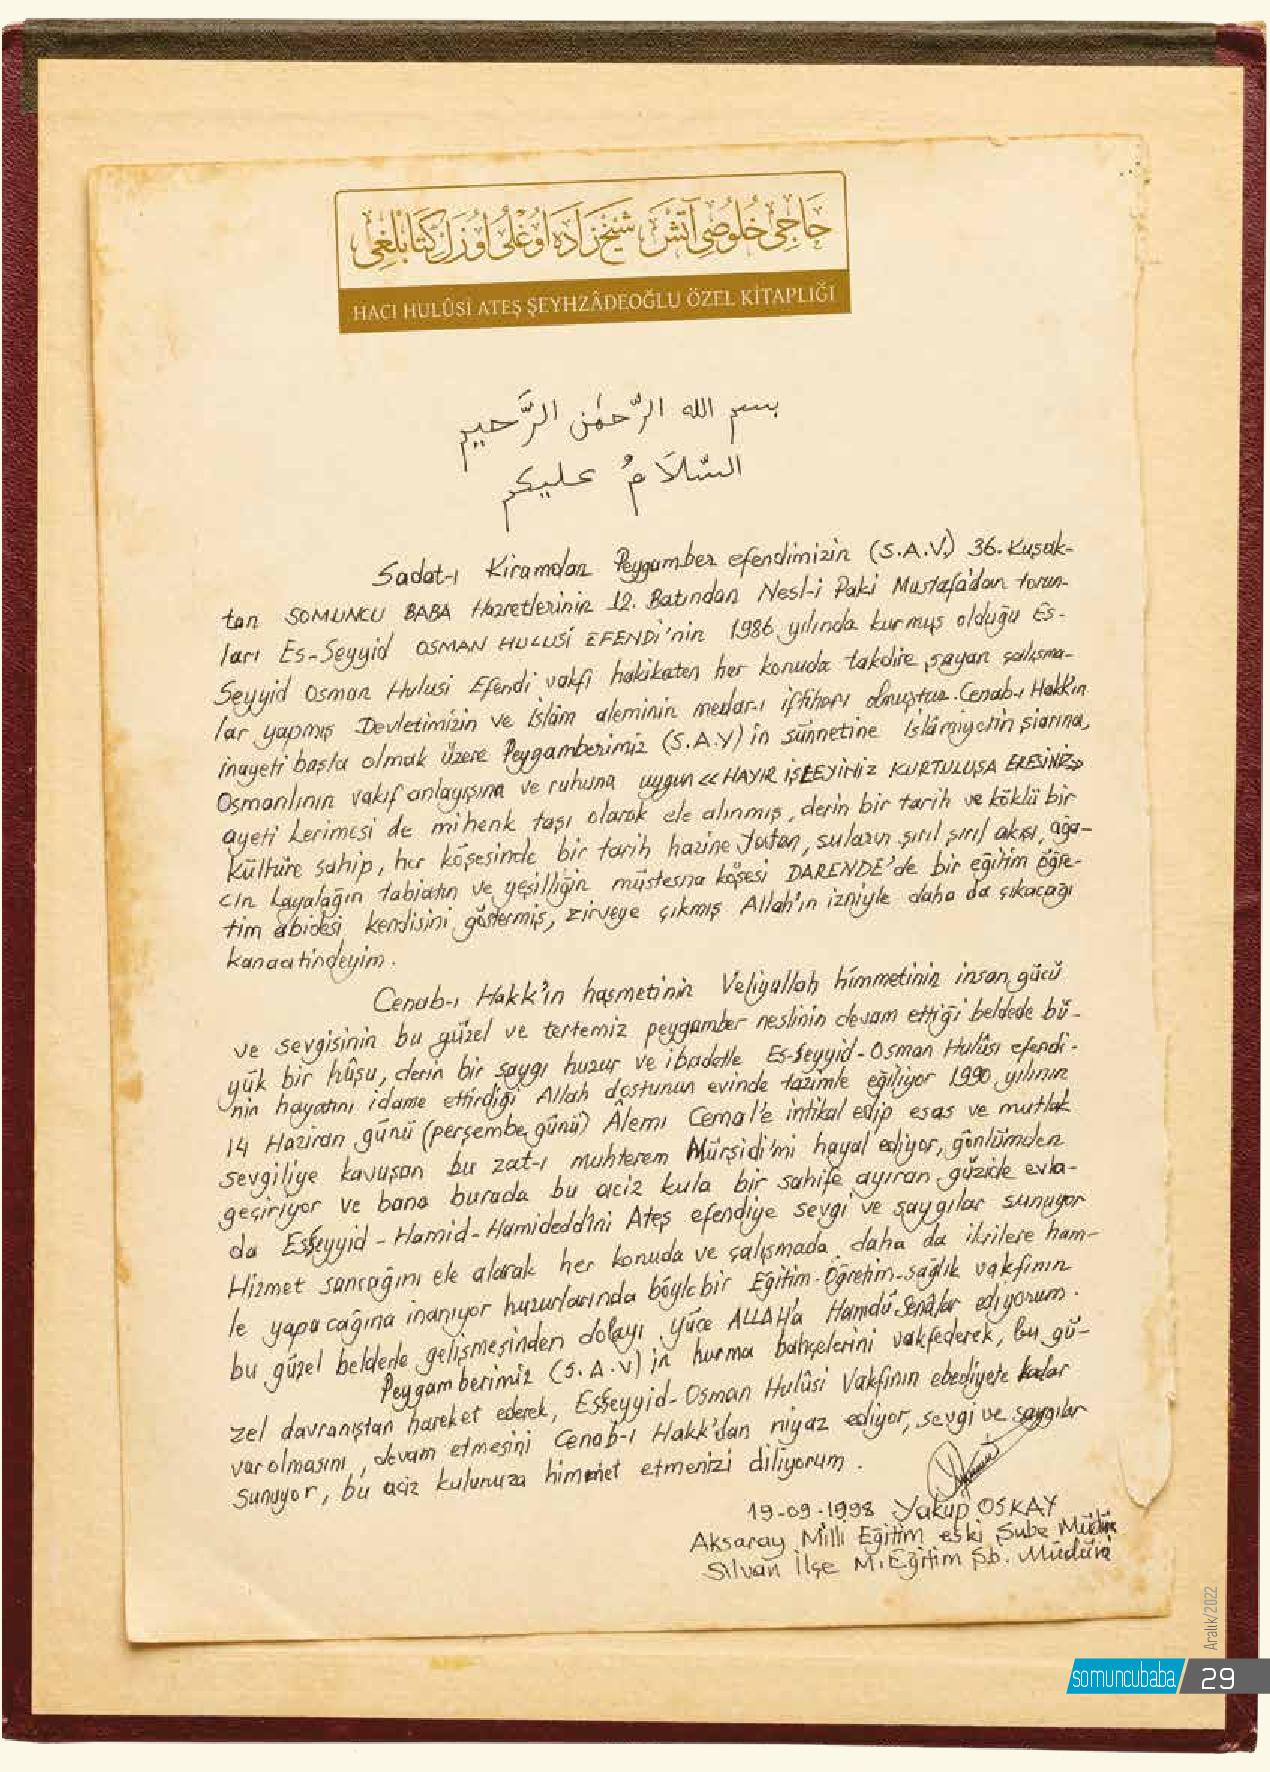 حاجى خلوصى آتش شيخ زاده اوغلى اوزل كتابلغى
HACI HULÛSİ ATEŞ ŞEYHZÂDEOĞLU ÖZEL KİTAPLIĞI
بسم الله الرّحمٰن الرَّحيم
السّلَامُ عليكم
Sadat-ı Kiramdan Peygamber efendimizin (S.A.V.) 36. Kuşak-
tan SOMUNCU BABA Hazretlerinin 12. Batından Nesl-i Paki Mustafa'dan torun-
ları Es-Seyyid OSMAN HULUSİ EFENDİ'nin 1986 yılında kurmuş olduğu Es-
Seyyid Osman Hulusi Efendi vakfı hakikaten her konuda takdire şayan çalışma-
lar yapmış Devletimizin ve İslâm aleminin medar-ı iftiharı olmuştur. Cenab-ı Hakk'ın
inayeti başta olmak üzere Peygamberimiz (S.A.V) in sünnetine İslâmiyetin şiarına,
Osmanlının vakıf anlayışına ve ruhuna uygun << HAYIR İŞLEYİNİZ KURTULUŞA ERESİNİZ>>
ayeti kerimesi de mihenk taşı olarak ele alınmış, derin bir tarih ve köklü bir
kültüre sahip, her köşesinde bir tarih hazine yatan, suların şırıl şırıl akışı, ağa-
cın kayalağın tabiatın ve yeşilliğin müstesna köşesi DARENDE'de bir eğitim öğre-
tim abidesi kendisini göstermiş, zirveye çıkmış Allah'ın izniyle daha da çıkacağı
kanaatindeyim.
Cenab-ı Hakk'ın haşmetinin Veliyullah himmetinin insan gücü
ve sevgisinin bu güzel ve tertemiz peygamber neslinin devam ettiği beldede bü-
yük bir hûşu, derin bir saygı huzur ve ibadetle Es-Seyyid-Osman Hulûsi efendi-
nin hayatını idame ettirdiği Allah dostunun evinde tazimle eğiliyor 1990 yılının
14 Haziran günü (perşembe günü) Alemı Cemal'e intikal edip esas ve mutlak
sevgiliye kavuşan bu zat-ı muhterem Mürşidi'mi hayal ediyor, gönlümden
geçiriyor ve bana burada bu aciz kula bir sahife ayıran güzide evla-
da Esseyyid-Hamid-Hamideddini Ateş efendiye sevgi ve saygılar sunuyor
Hizmet sancağını ele alarak her konuda ve çalışmada daha da ikrilere ham-
le yapacağına inanıyor huzurlarında böyle bir Eğitim-Öğretim-sağlık vakfının
bu güzel beldede gelişmesinden dolayı Yüce ALLAH'a Hamdü Senâlar ediyorum.
Peygamberimiz (S.A.V) in hurma bahçelerini vakfederek, bu gü-
zel davranıştan hareket ederek, Esseyyid-Osman Hulûsi Vakfının ebediyete kadar
var olmasını, devam etmesini Cenab-ı Hakk'dan niyaz ediyor, sevgi ve saygılar
sunuyor, bu aciz kulunuza himmet etmenizi diliyorum.
19-09-1998 Yakup OSKAY
Aksaray Milli Eğitim eski Şube Müdürü
Silvan İlçe M.Eğitim Şb. Müdürü
Aralık/2022
somuncubaba 29